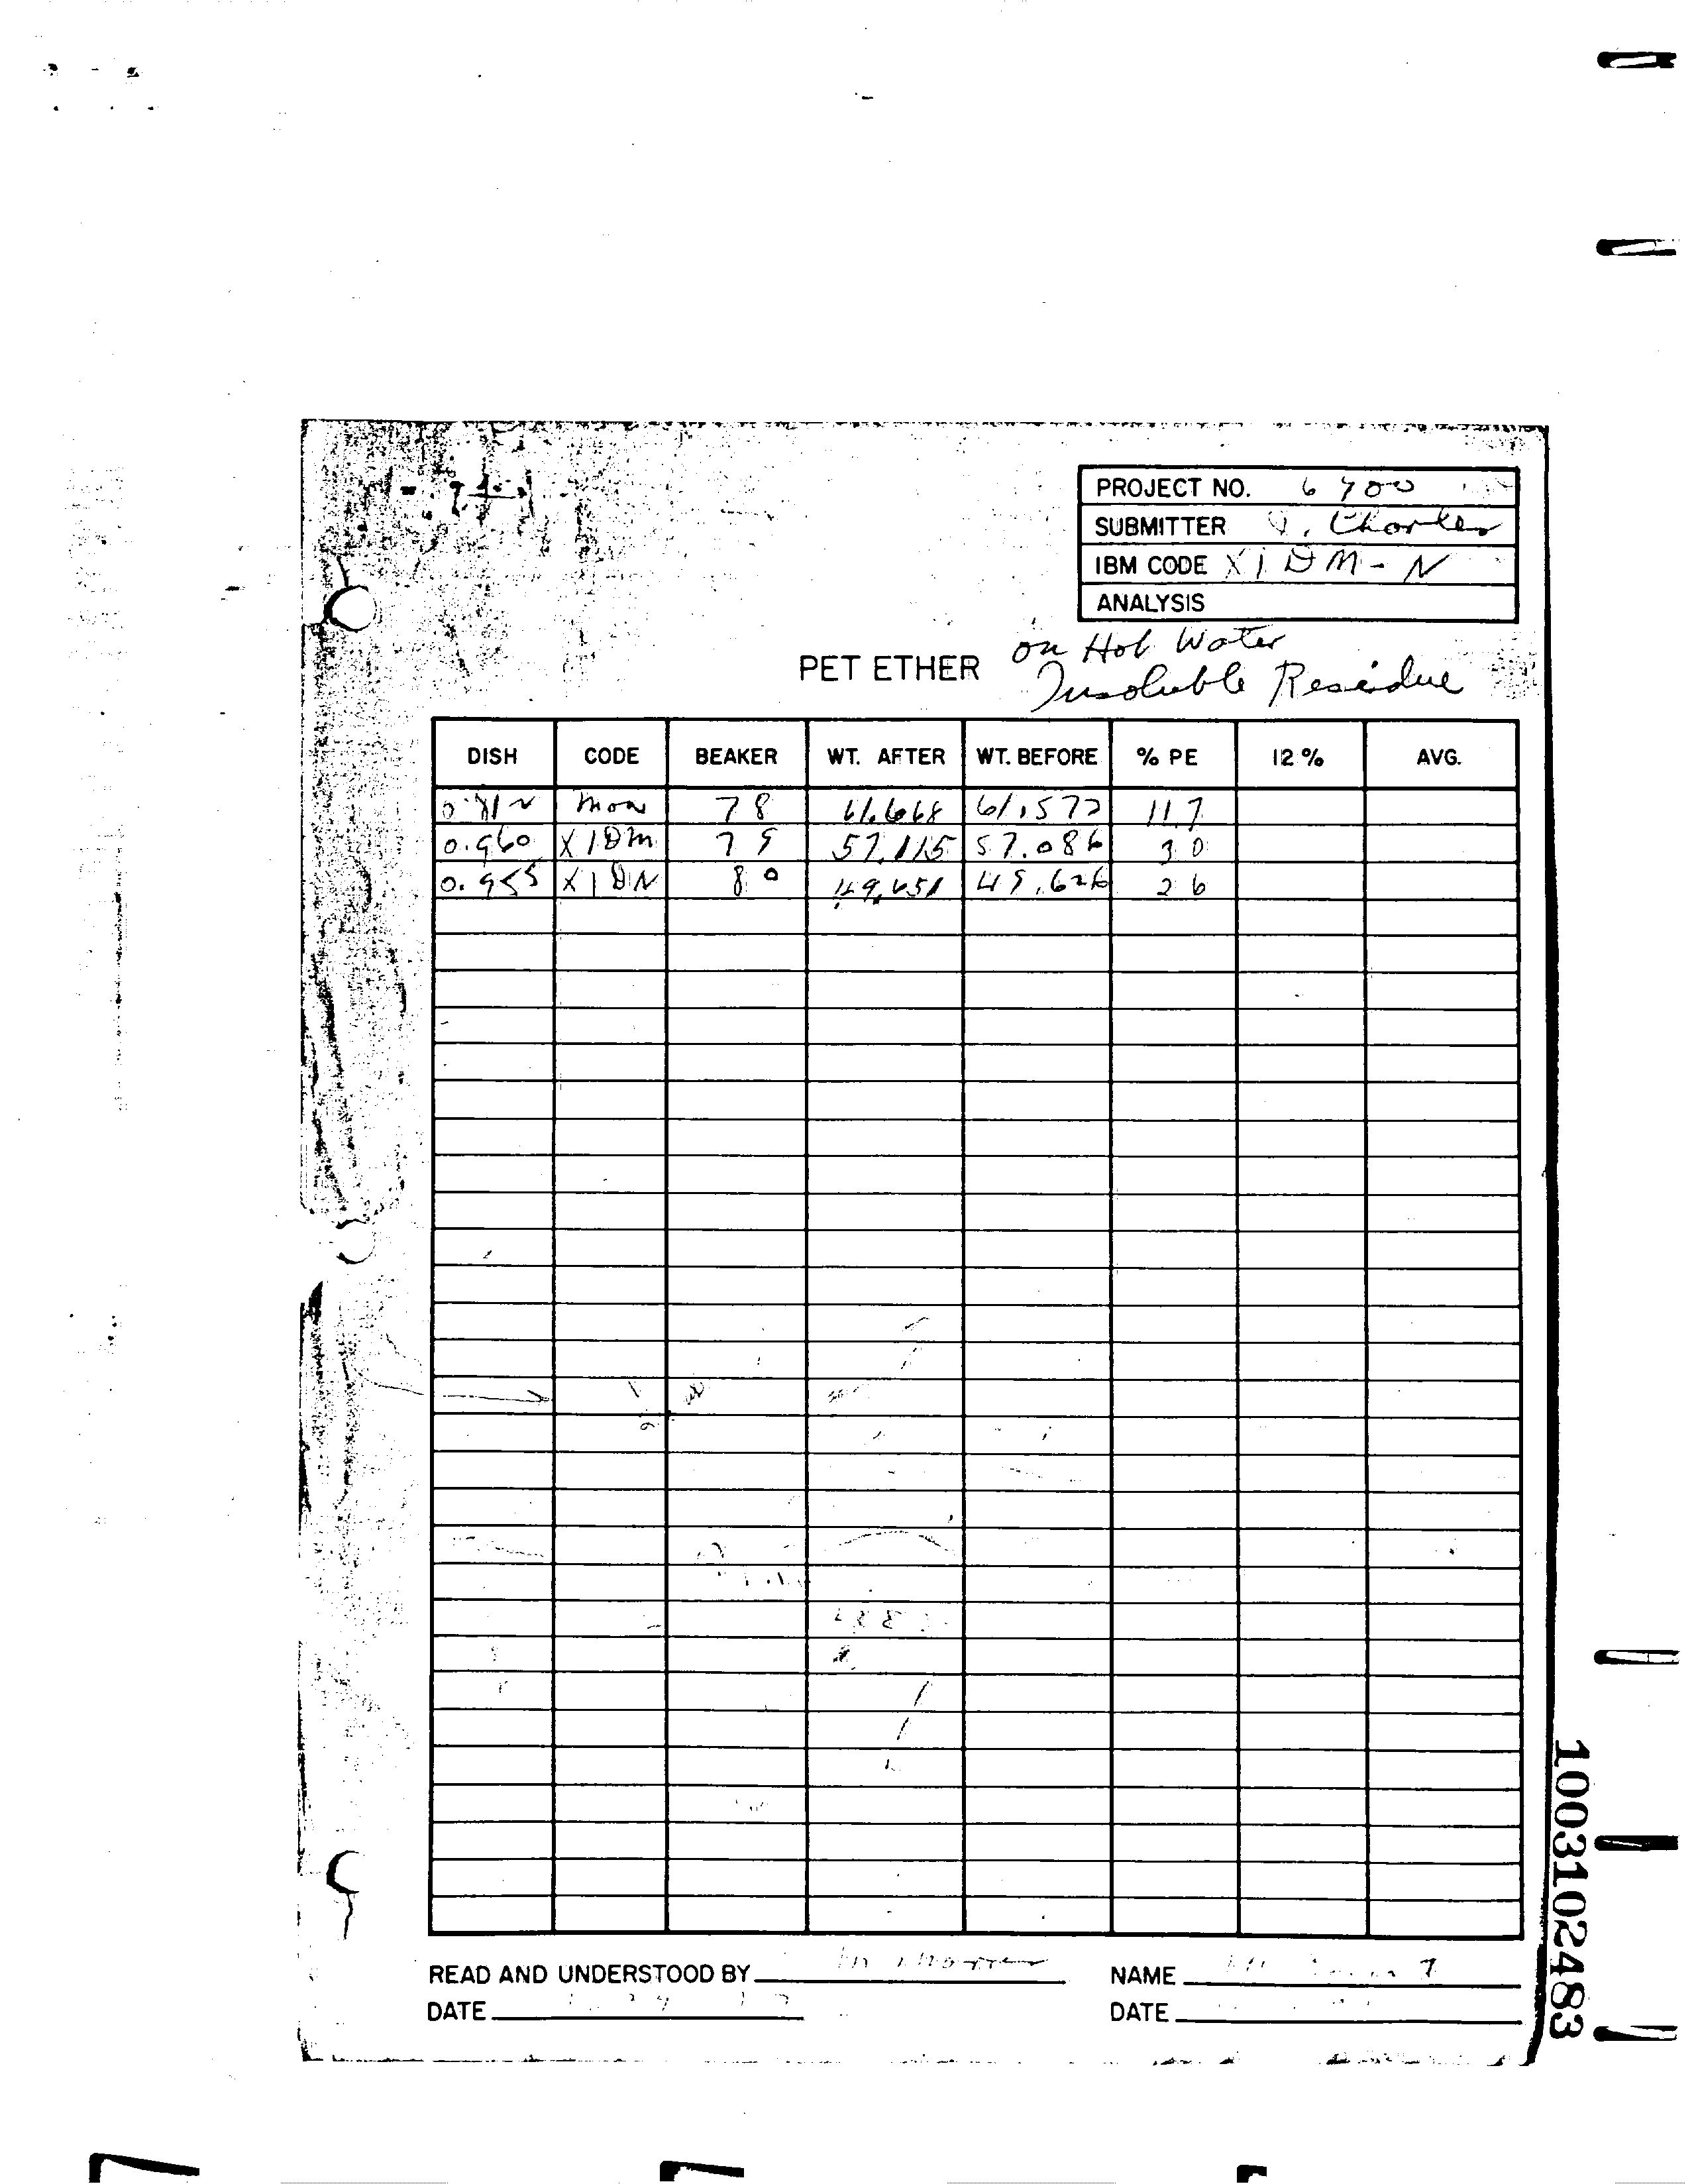 PROJECT NO. 6900
SUBMITTER J. Charles
IBM CODE X1DM-N
ANALYSIS
PET ETHER on Hot Water
Insoluble Residue
DISH CODE BEAKER WT. AFTER WT. BEFORE % PE 12% AVG.
0.812 Mon 78 61.668 61.573 11.7
0.960 X1DM 79 57.115 57.086 3.0
0.955 X1DN 80 49.651 49.626 2.6
READ AND UNDERSTOOD BY NAME
DATE DATE
1003102483